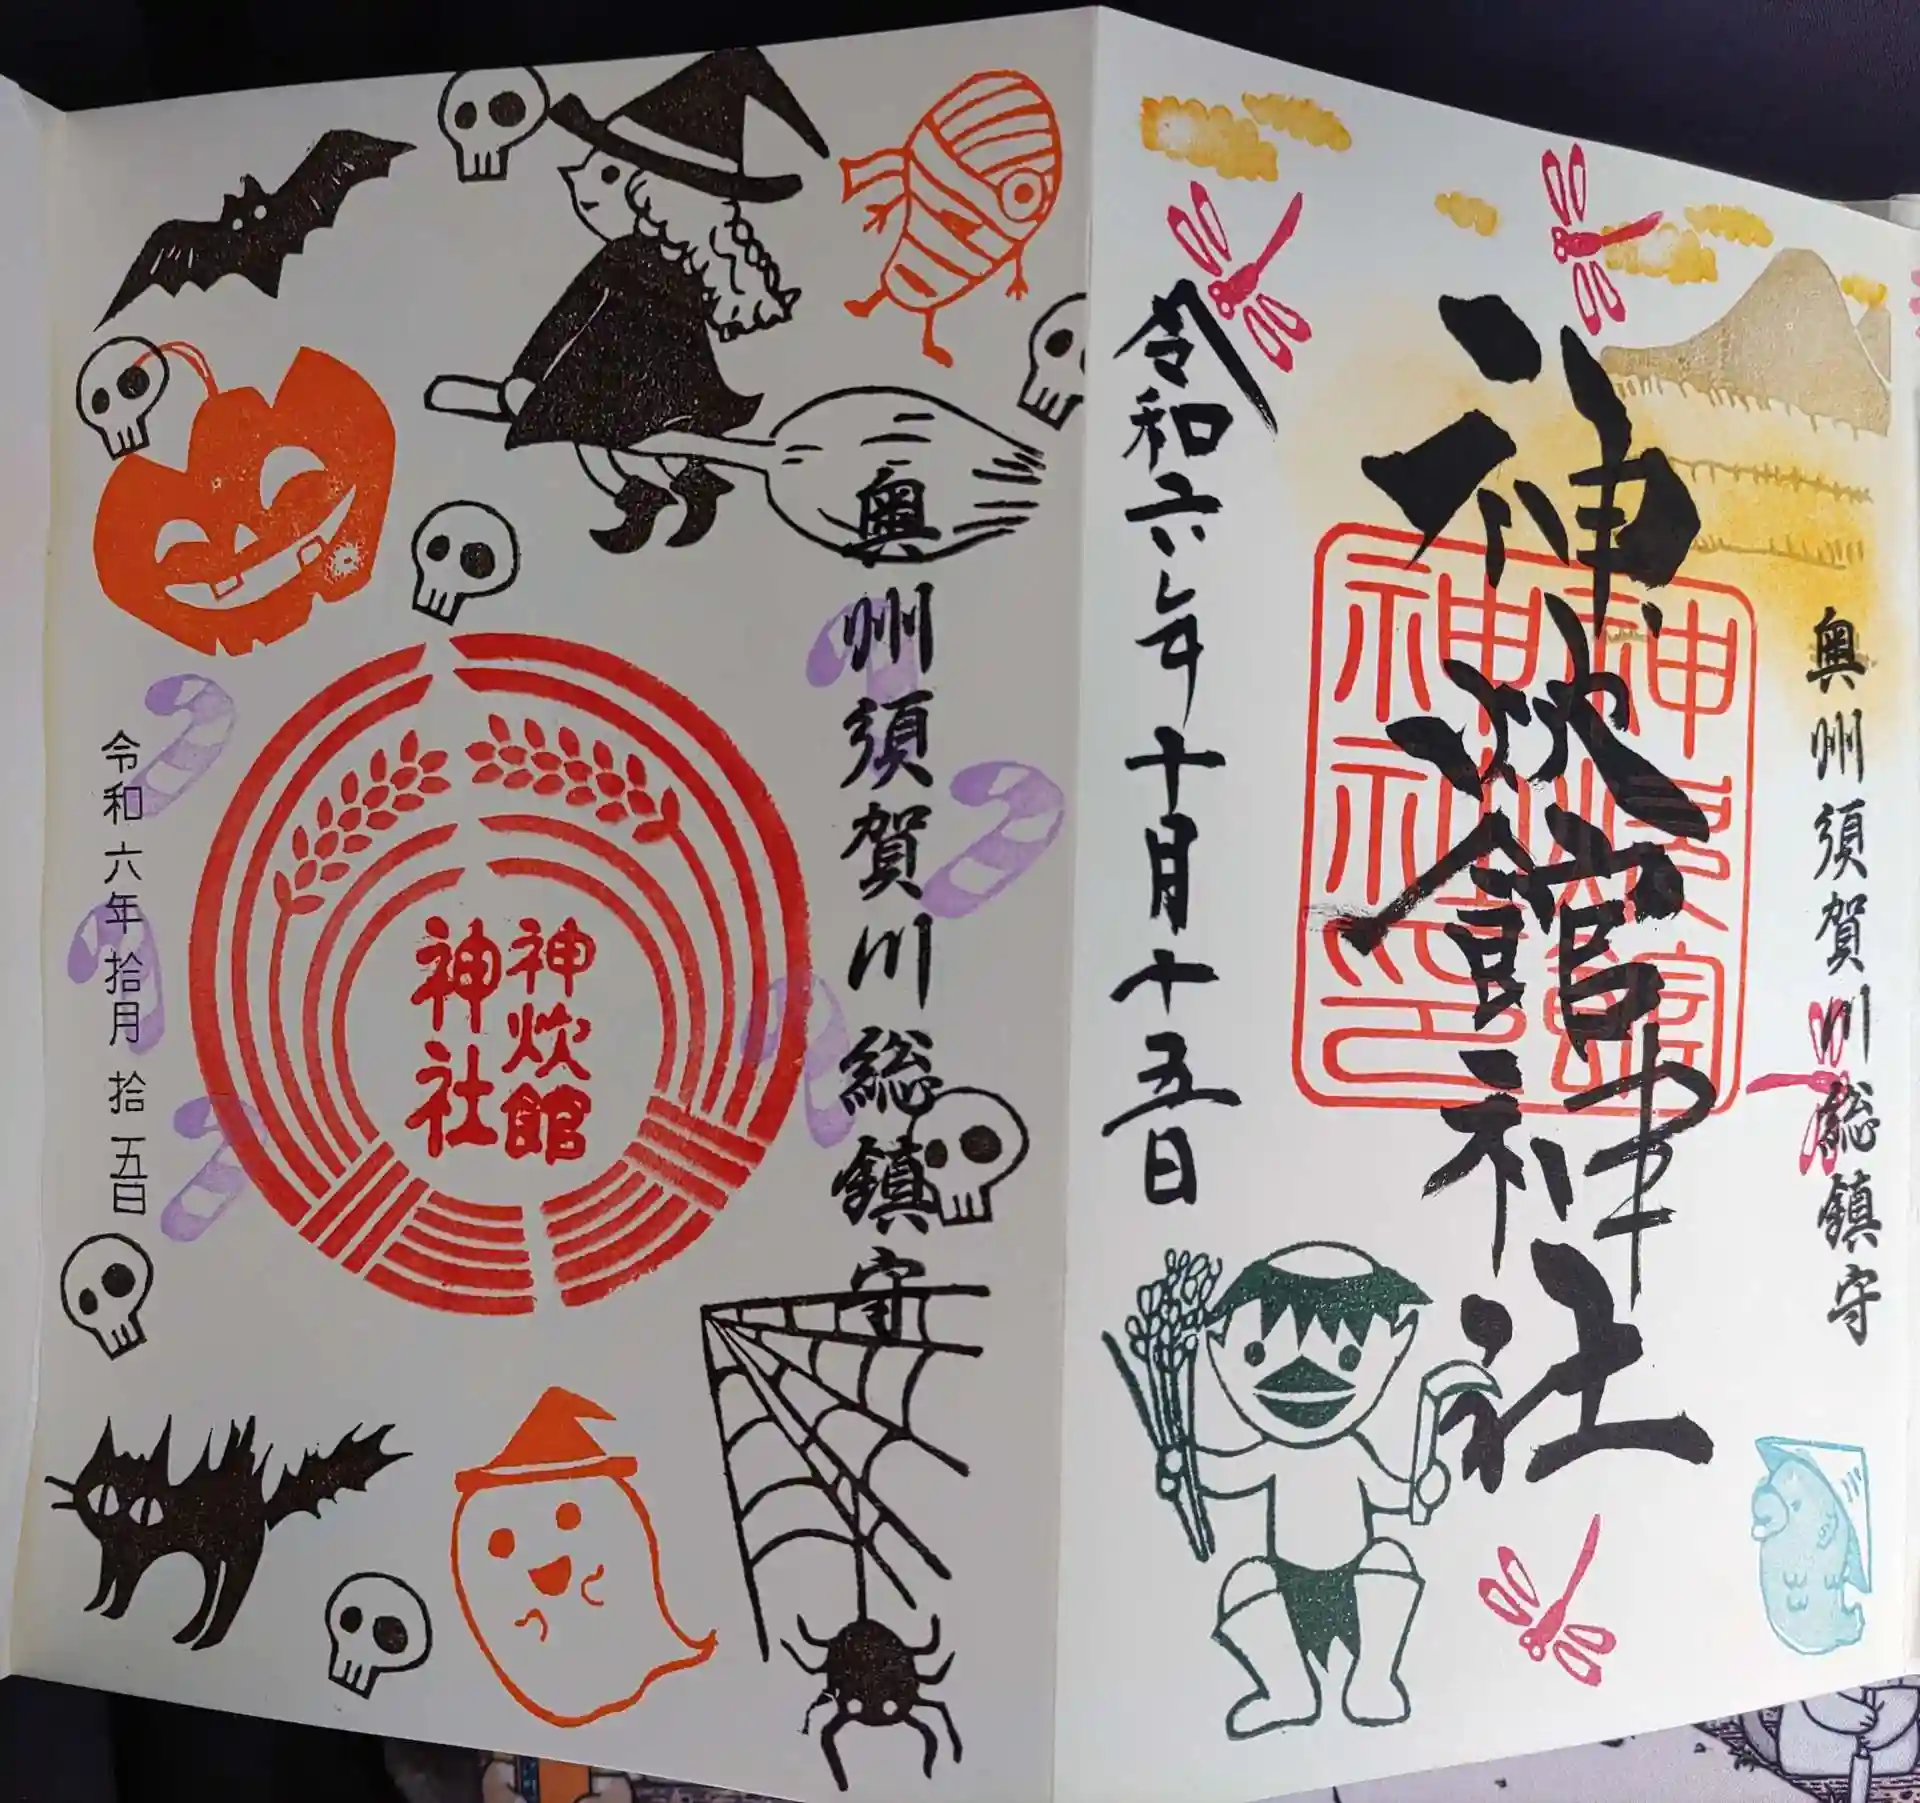 奥州須賀川総鎮守
神炊館神社
神炊館神社印
令和六年十月十五日
奥州須賀川総鎮守
神炊館
神社
令和六年拾月拾五日